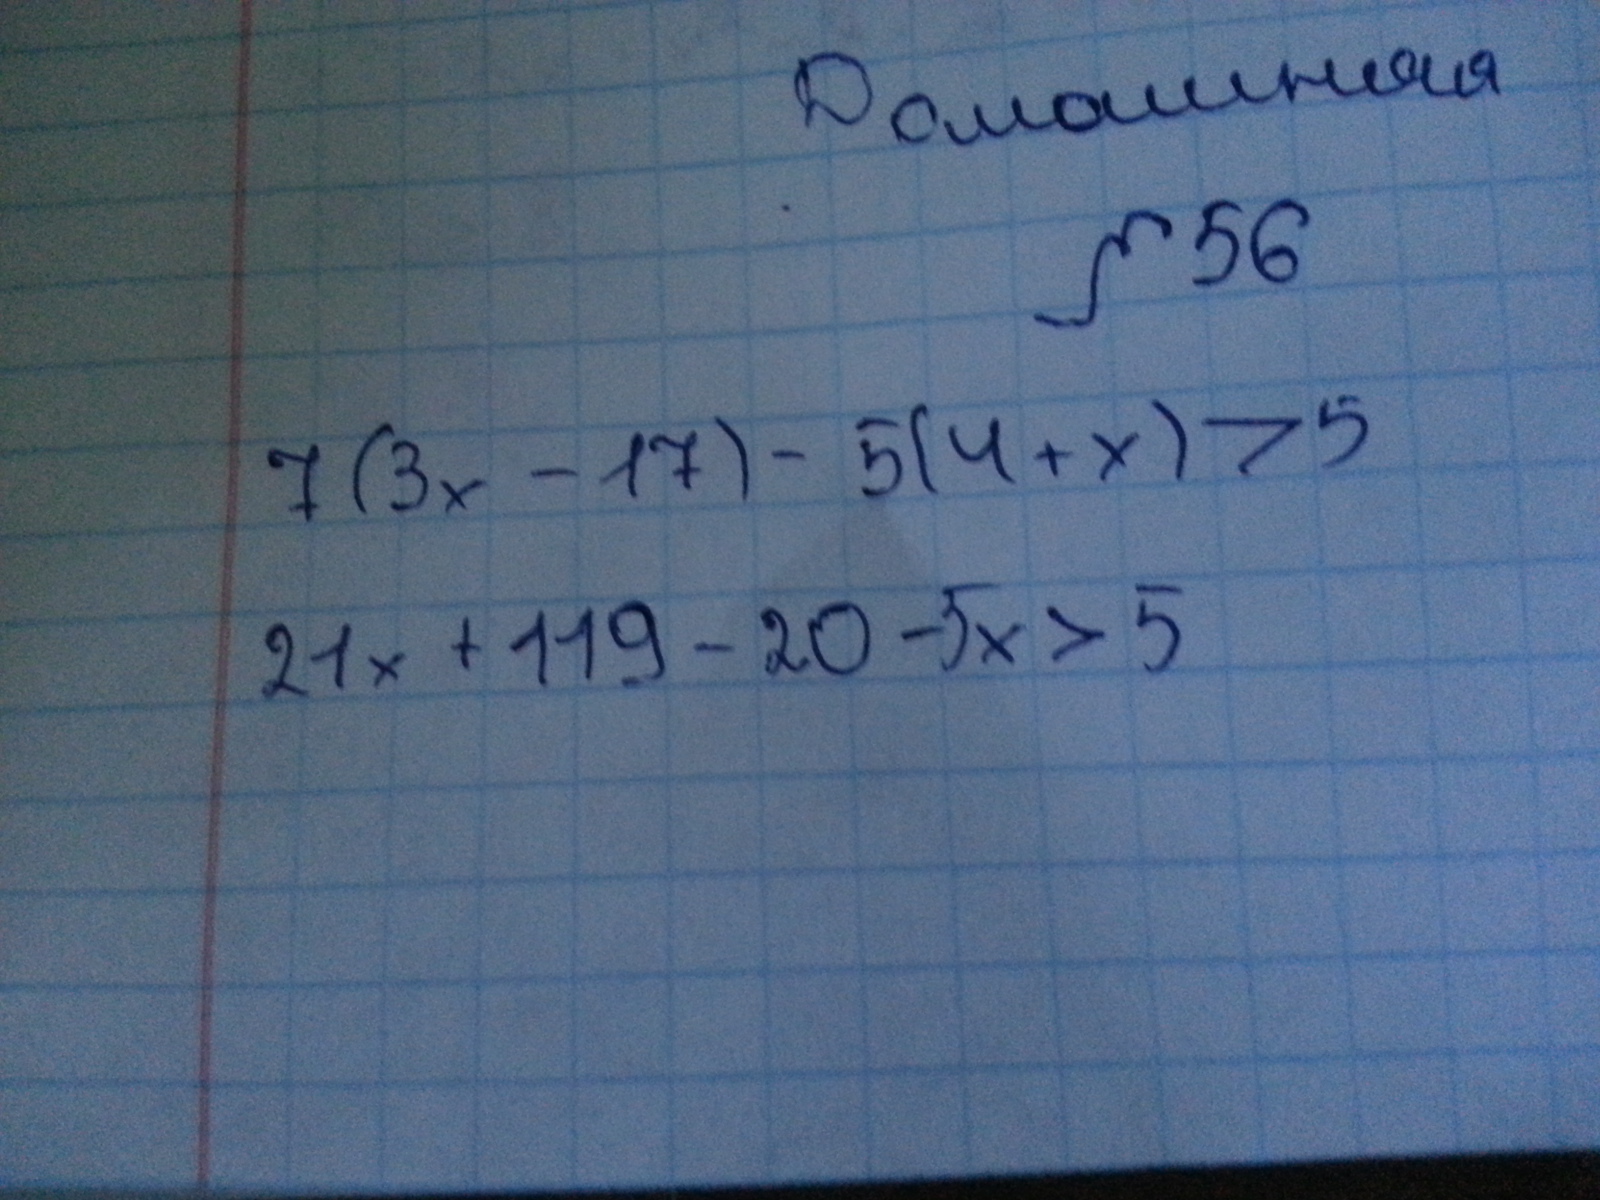 Домашняя
№56
7(3x - 17) - 5(4 + x) > 5
21x + 119 - 20 - 5x > 5